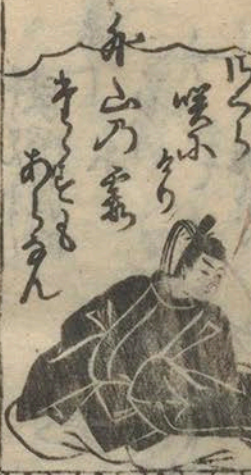 さくら
咲に
けり
外山乃霞
たゝすも
あらなん